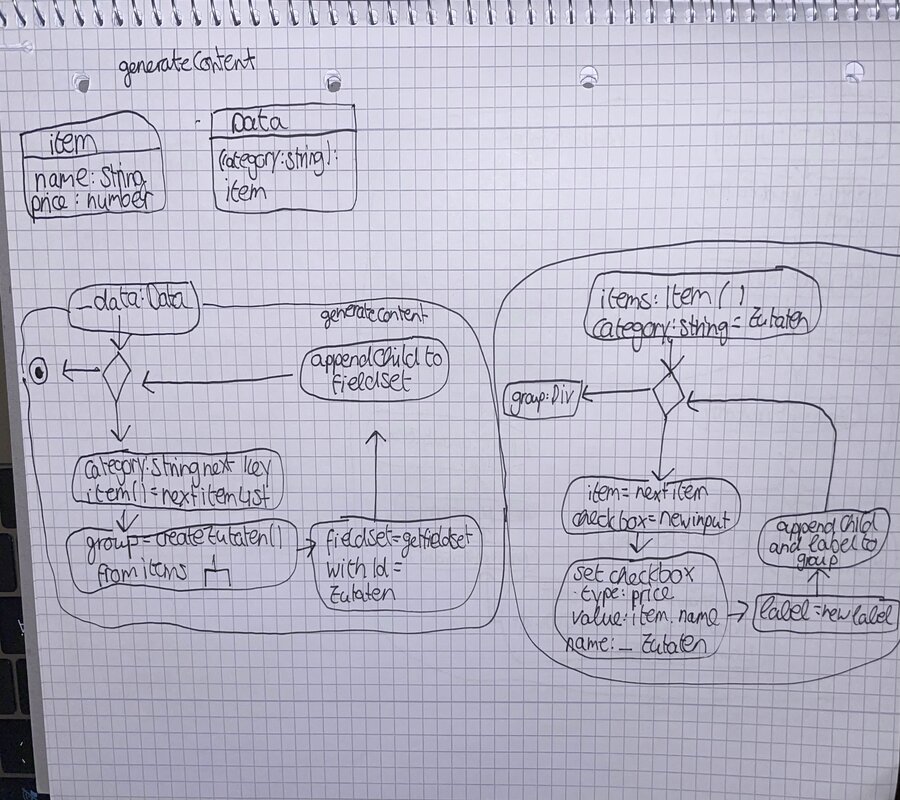 generateContent
item
name: String
price: number
Data
(category:string):
item
_data:Data
generatecontent
appendChild to
fieldset
category:String next key
item()=nextitemList
group=createZutaten()
from items
fieldset=getfieldset
with Id=
Zutaten
items: Item ()
category:string= Zutaten
group:Div
item=nextitem
checkbox=newinput
set checkbox
type: price
value:item.name
name:_ Zutaten
append Child
and label to
group
label=newlabel